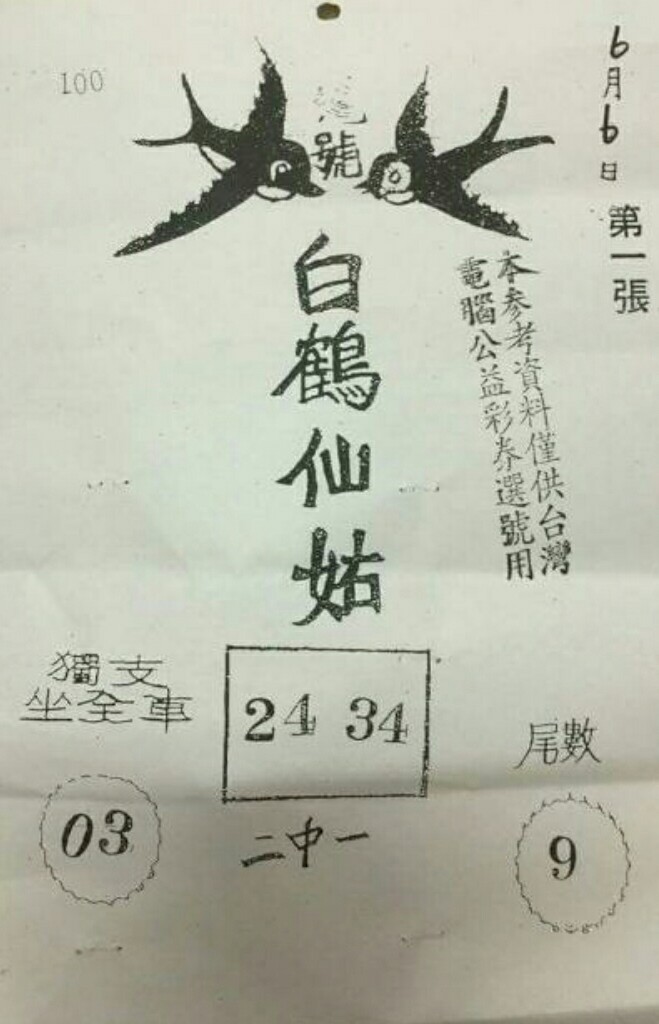 100
6月6日 第一張
號
白鶴仙姑
本參考資料僅供台灣
電腦公益彩券選號用
獨支
坐全車
03
24 34
二中一
尾數
9